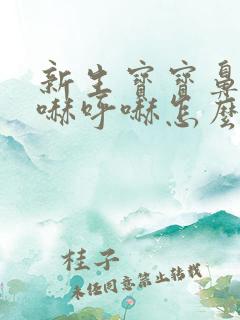 新生寶寶鼻
嘛呼嘛怎麼
桂子
未经同意禁止转载